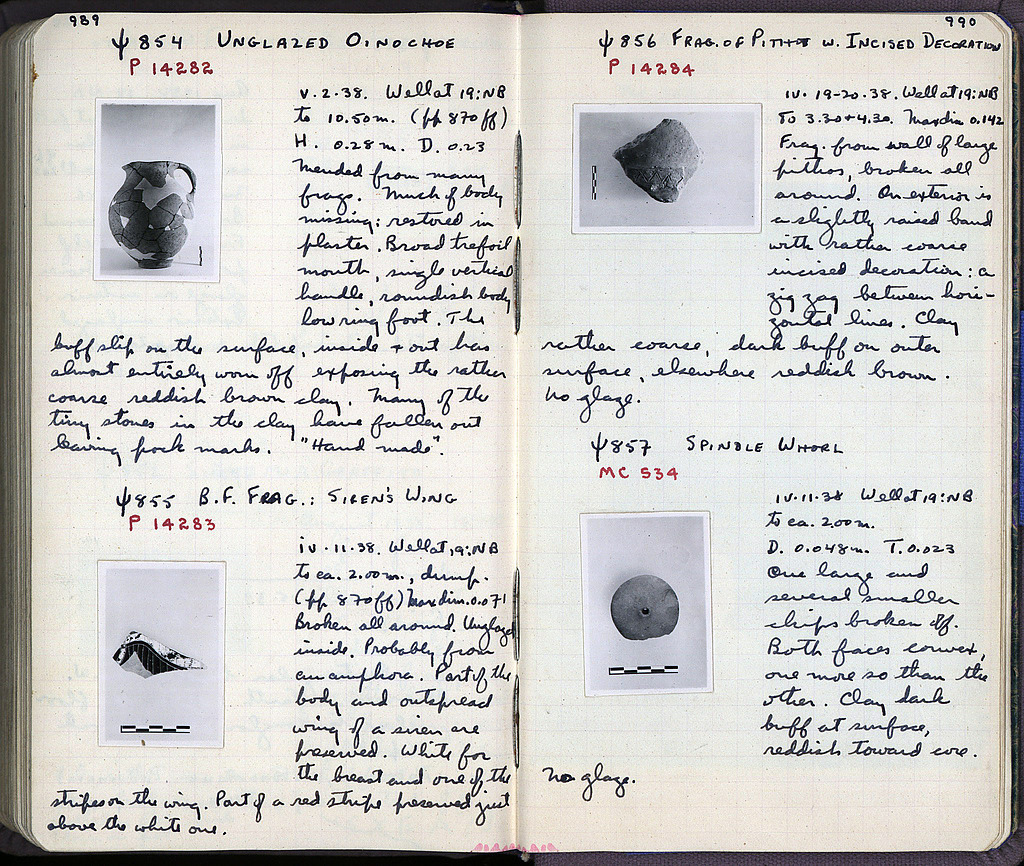 989
Ψ854 UNGLAZED OINOCHOE
P 14282
V.2.38. Well at 19:NB
to 10.50m. (pp 870 ff)
H. 0.28m. D. 0.23
Mended from many
frags. Much of body
missing: restored in
plaster. Broad trefoil
mouth, single vertical
handle, roundish body,
low ring foot. The
buff slip on the surface, inside + out has
almost entirely worn off exposing the rather
coarse reddish brown clay. Many of the
tiny stones in the clay have fallen out
leaving pock marks. "Hand made".
Ψ855 B.F. FRAG.: SIREN'S WING
P 14283
iv.11.38. Well at 19:NB
to ca. 2.00m., dump.
(pp 870 ff) Max dim. 0.071
Broken all around. Unglazed
inside. Probably from
an amphora. Part of the
body and outspread
wing of a siren are
preserved. White for
the breast and one of the
stripes on the wing. Part of a red stripe preserved just
above the white one.
990
Ψ856 FRAG. OF PITHOS W. INCISED DECORATION
P 14284
iv.19-20.38. Well at 19:NB
To 3.30+4.30. Max dim 0.142
Frag. from wall of large
pithos, broken all
around. On exterior is
a slightly raised band
with rather coarse
incised decoration: a
zig zag between hori-
zontal lines. Clay
rather coarse, dark buff on outer
surface, elsewhere reddish brown.
No glaze.
Ψ857 SPINDLE WHORL
MC 534
iv.11.38 Well at 19:NB
to ca. 2.00m.
D. 0.048m. T. 0.023
One large and
several smaller
chips broken off.
Both faces convex,
one more so than the
other. Clay dark
buff at surface,
reddish toward core.
No glaze.